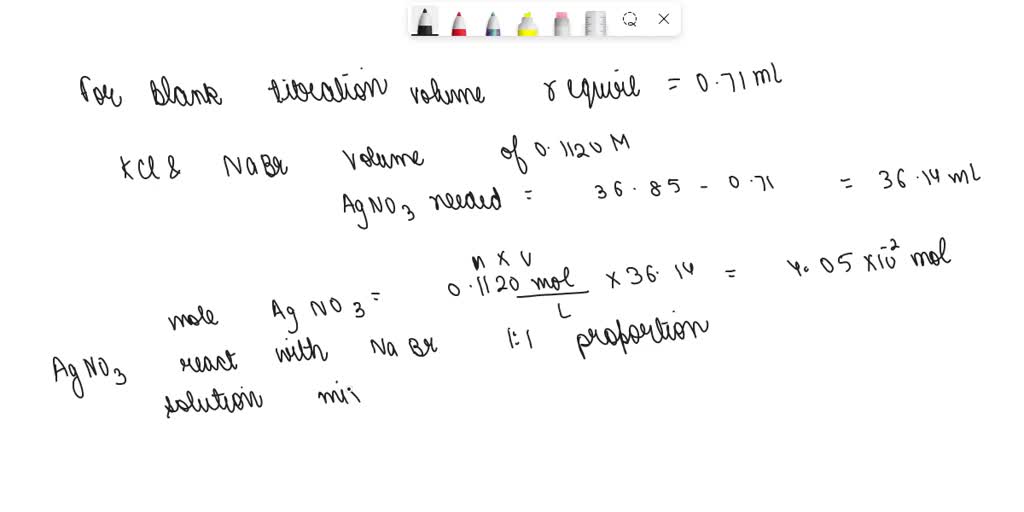 For blank titration volume require = 0.71 ml
KCl & NaBr volume of 0.1120 M
AgNO3 needed = 36.85 - 0.71 = 36.14 ml
n x v
mole AgNO3 = 0.1120 mol/L x 36.14 = 4.05 x 10^-2 mol
AgNO3 react with NaBr 1:1 proportion
solution mix